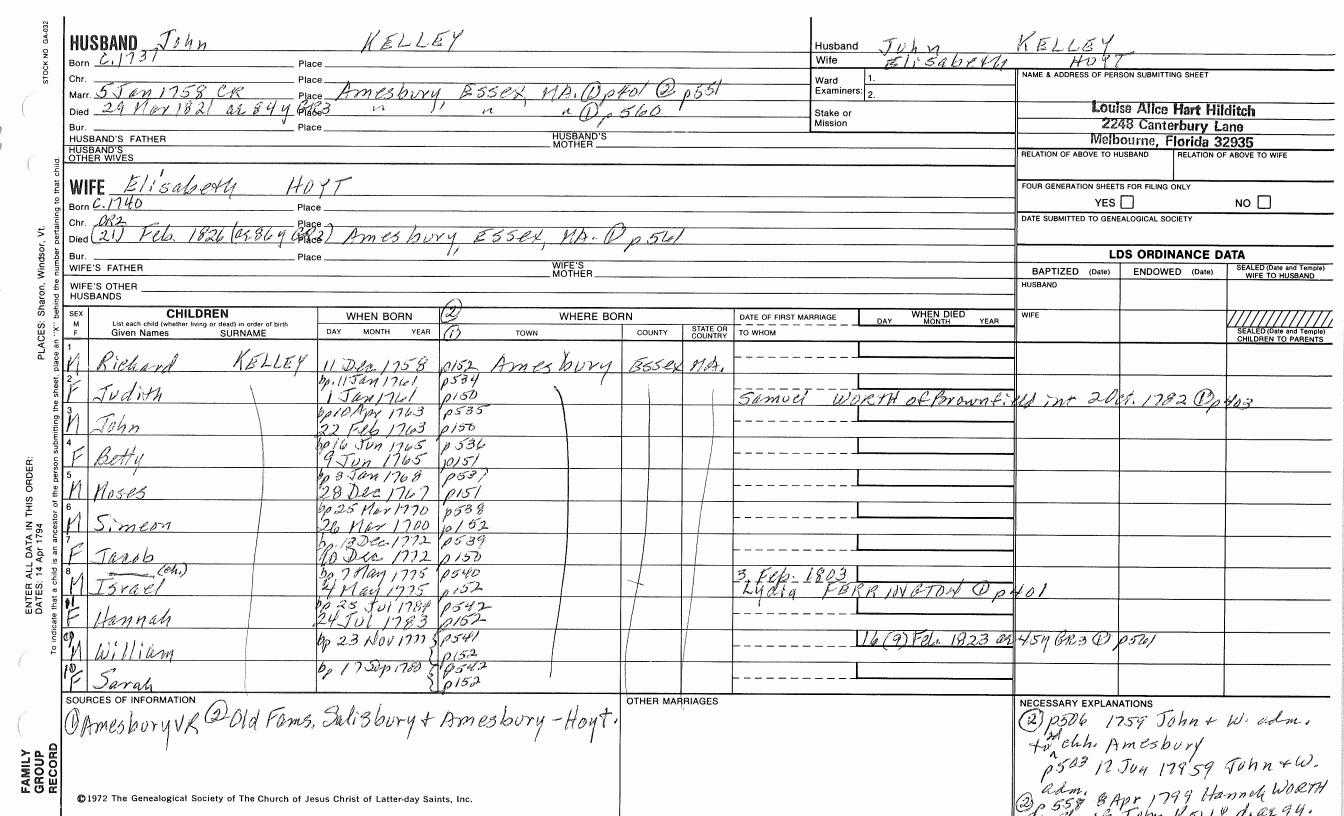 STOCK NO. GA-032
HUSBAND John KELLEY
Born C.1737 Place
Chr. Place
Marr. 5 Jan 1758 CR Place Amesbury Essex, MA. ① p401 ② p551
Died 29 Mar 1821 ae 84 y GR3 Place " " " " ① p560
Bur. Place
HUSBAND'S FATHER HUSBAND'S MOTHER
HUSBAND'S OTHER WIVES
WIFE Elisabeth HOYT
Born C.1740 Place
Chr. Place
Died (21) Feb. 1826 (ae 86 y GR2) Place Amesbury, Essex, MA. ① p561
Bur. Place
WIFE'S FATHER WIFE'S MOTHER
WIFE'S OTHER HUSBANDS
Husband John KELLEY
Wife Elisabeth HOYT
Ward Examiners: 1.
2.
Stake or Mission
NAME & ADDRESS OF PERSON SUBMITTING SHEET
Louise Alice Hart Hilditch
2248 Canterbury Lane
Melbourne, Florida 32935
RELATION OF ABOVE TO HUSBAND RELATION OF ABOVE TO WIFE
FOUR GENERATION SHEETS FOR FILING ONLY
YES NO
DATE SUBMITTED TO GENEALOGICAL SOCIETY
LDS ORDINANCE DATA
BAPTIZED (Date) ENDOWED (Date) SEALED (Date and Temple) WIFE TO HUSBAND
HUSBAND
WIFE
SEALED (Date and Temple) CHILDREN TO PARENTS
SEX M F CHILDREN WHEN BORN ② WHERE BORN DATE OF FIRST MARRIAGE WHEN DIED
List each child (whether living or dead) in order of birth
Given Names SURNAME DAY MONTH YEAR ① TOWN COUNTY STATE OR COUNTRY TO WHOM DAY MONTH YEAR
1 M Richard KELLEY 11 Dec 1758 p152 Amesbury Essex MA.
2 bp. 11 Jan 1761 p534
F Judith 1 Jan 1761 p150 Samuel WORTH of Brownfield int 2 Oct. 1782 ① p403
3 bp 10 Apr 1763 p535
M John 22 Feb 1763 p150
4 bp 16 Jun 1765 p536
F Betty 9 Jun 1765 p151
5 bp 3 Jan 1768 p537
M Moses 28 Dec 1767 p151
6 bp 25 Mar 1770 p538
M Simeon 26 Mar 1700 p152
7 bp 13 Dec 1772 p539
F Jacob 10 Dec 1772 p150
8 (ch.) bp 7 May 1775 p540 3 Feb. 1803
M Israel 4 May 1775 p152 Lydia FERRINGTON ① p401
11 bp 25 Jul 1784 p542
F Hannah 24 Jul 1783 p152
9 M William bp 23 Nov 1777 p541 p152 16 (9) Feb. 1823 ae 45 y GR3 ① p561
10 F Sarah bp 17 Sep 1780 p542 p152
SOURCES OF INFORMATION
① Amesbury VR ② Old Fams, Salisbury & Amesbury - Hoyt.
OTHER MARRIAGES
NECESSARY EXPLANATIONS
② p506 1759 John & W. adm.
to 2nd chh. Amesbury
p503 17 Jun 17959 John & W.
adm.
② p558 8 Apr 1799 Hannah WORTH
John KELLY d. ae 94.
©1972 The Genealogical Society of The Church of Jesus Christ of Latter-day Saints, Inc.
FAMILY GROUP RECORD
ENTER ALL DATA IN THIS ORDER:
DATES: 14 Apr 1794
PLACES: Sharon, Windsor, Vt.
To indicate that a child is an ancestor of the person submitting the sheet, place an "X" behind the number pertaining to that child.